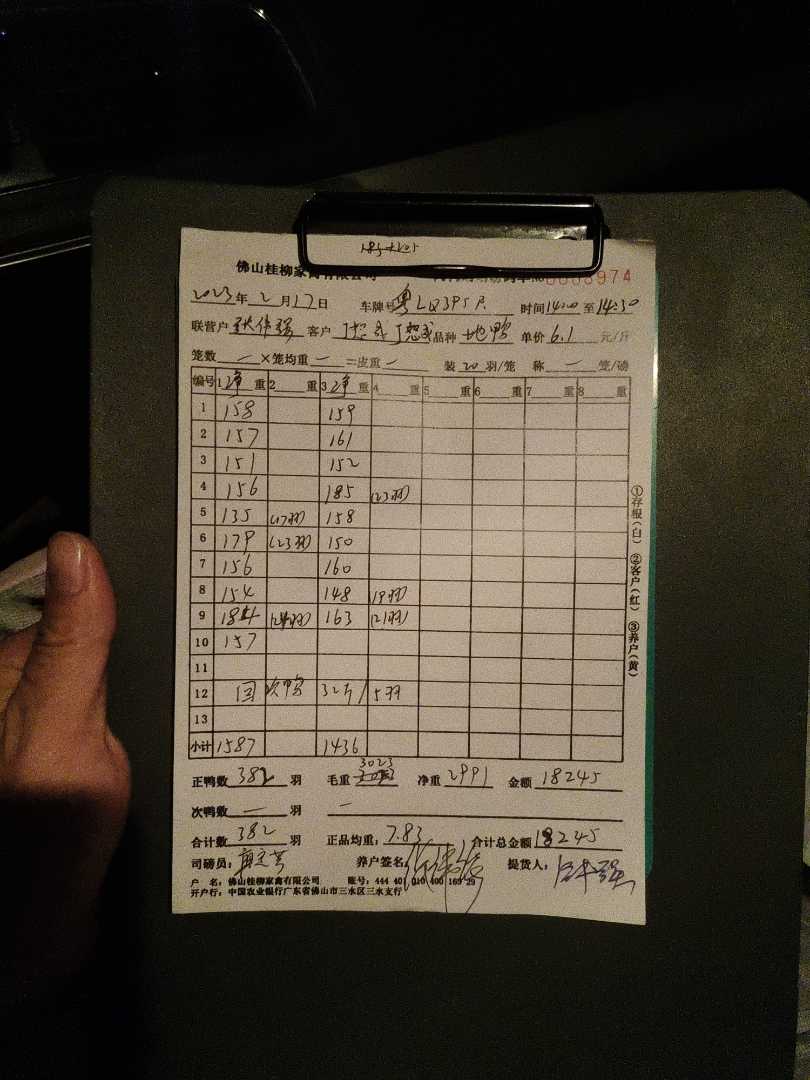 佛山桂柳家禽有限公司
2023年2月17日 车牌号粤LQ395R 时间14:00至14:30
联营户 张伟强 客户 品种 地鸭 单价6.1元/斤
笼数 一 ×笼均重 一 =皮重 一 装20羽/笼 称 一 笼/磅
编号 1净重 2 重 3净重 4 重 5 重 6 重 7 重 8 重
1 158 159
2 157 161
3 151 152
4 156 185 (23羽)
5 135 (17羽) 158
6 179 (23羽) 150
7 156 160
8 154 148 19羽)
9 184 (24羽) 163 (21羽)
10 157
11
12 回 次鸭 32斤/5羽
13
小计 1587 1436
正鸭数 382 羽 毛重 3023 净重 2991 金额 18245
次鸭数 一 羽 一
合计数 382 羽 正品均重: 7.83 合计总金额 18245
司磅员: 养户签名: 提货人:
户 名: 佛山桂柳家禽有限公司 账号: 444 401 010 400 163 29
开户行: 中国农业银行广东省佛山市三水区三水支行
①存根(白) ②客户(红) ③养户(黄)